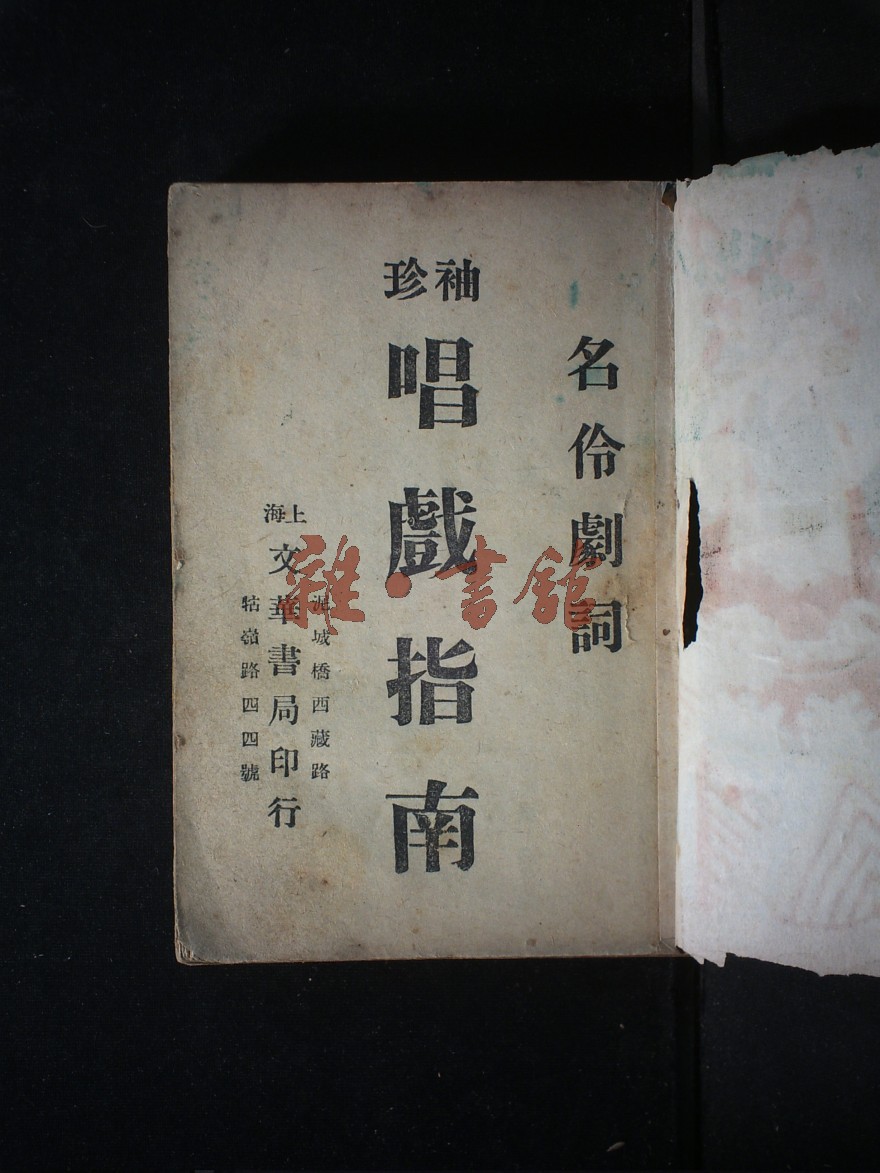 名伶劇詞
袖珍
唱戲指南
上海
泥城橋西藏路
文華書局印行
牯嶺路四四號
雜·書館